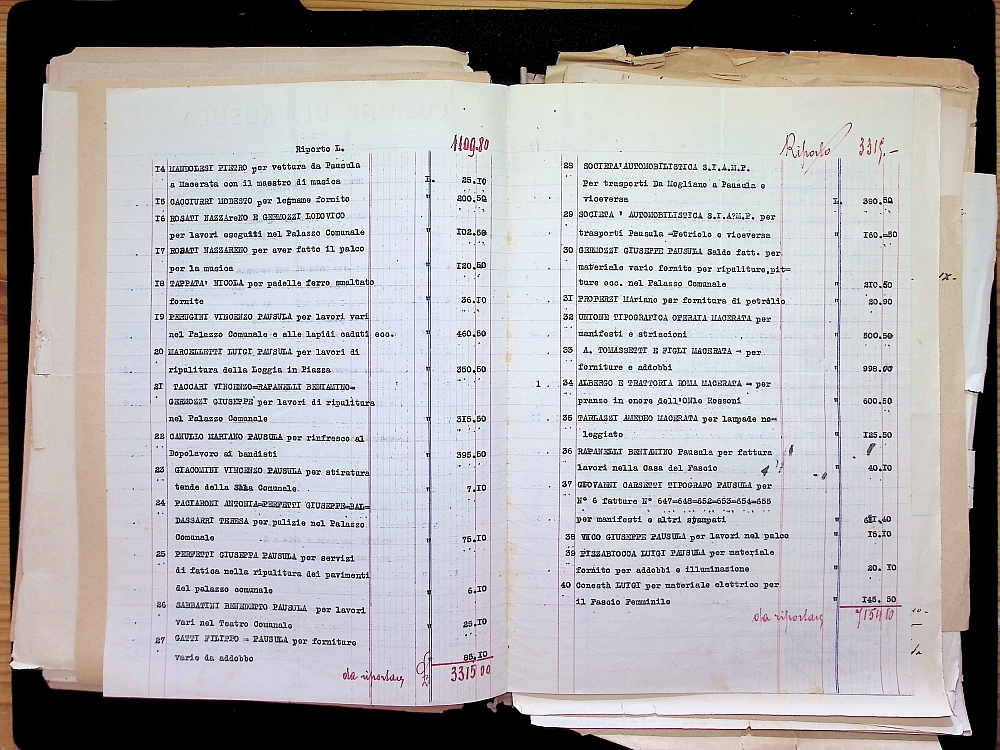 Riporto L. 1199.80
14 MANDOLESI PIETRO per vettura da Pausula
a Macerata con il maestro di musica L. 25.I0
I5 CACCIURRI MODESTO per legname fornito " 200.50
I6 ROSATI NAZZAreNO E GERMOZZI LODOVICO
per lavori eseguiti nel Palazzo Comunale " I02.50
I7 ROSATI NAZZARENO per aver fatto il palco
per la musica " I20.50
I8 TAPPATA' NICOLA per padelle ferro smaltato
fornite " 36.I0
I9 PERUGINI VINCENZO PAUSULA per lavori vari
nel Palazzo Comunale e alle lapidi caduti ecc. " 460.50
20 MARCELLETTI LUIGI PAUSULA per lavori di
ripulitura della Loggia in Piazza " 350.50
2I TACCARI VINCENZO=RAPANELLI BENIAMINO=
GERMOZZI GIUSEPPE per lavori di ripulitura
nel Palazzo Comunale " 3I5.50
22 CANULLO MARIANO PAUSULA per rinfresco al
Dopolavoro ai bandisti " 395.50
23 GIACOMINI VINCENZO PAUSULA per stiratura
tende della Sala Comunale. " 7.I0
24 PACIARONI ANTONIA=PERFETTI GIUSEPPE=BAL=
DASSARRI TERESA per pulizie nel Palazzo
Comunale " 75.I0
25 PERFETTI GIUSEPPA PAUSULA per servizi
di fatica nella ripulitura dei pavimenti
del palazzo comunale " 6.I0
26 SABBATINI BENEDETTO PAUSULA per lavori
vari nel Teatro Comunale " 25.I0
27 GATTI FILIPPO = PAUSULA per forniture
varie da addobbo " 85.I0
da riportare 3315 00
Riporto 3315.—
28 SOCIETA'AUTOMOBILISTICA S.I.A.M.P.
Per trasporti Da Mogliano a Pausula e
viceversa L. 390.50
29 SOCIETA ' AUTOMOBILISTICA S.I.A?M.P. per
trasporti Pausula =Petriolo e viceversa " I60.=50
30 GERMOZZI GIUSEPPE PAUSULA Saldo fatt. per
materiale vario fornito per ripuliture,pit=
ture ecc. nel Palazzo Comunale " 2I0.50
3I PROPERZI MAriano per fornitura di petrolio " 20.90
32 UNIONE TIPOGRAFICA OPERAIA MACERATA per
manifesti e striscioni " 500.50
33 A. TOMASSETTI E FIGLI MACERATA = per
forniture e addobbi " 998.00
1 . 34 ALBERGO E TRATTORIA ROMA MACERATA = per
pranzo in onore dell'ONle Rossoni " 600.50
35 TARLAZZI AMEDEO MACERATA per lampade no=
leggiate " I25.50
36 RAPANELLI BENIAMINO Pausula per fattura
lavori nella Casa del Fascio " 40.I0
37 GEOVANNI CARSETTI TIPOGRAFO PAUSULA per
N° 6 fatture N° 647=648=652=653=654=655
per manifesti e altri stampati " 6II.40
38 VICO GIUSEPPE PAUSULA per lavori nel palco " I5.I0
39 PIZZABIOCCA LUIGI PAUSULA per materiale
fornito per addobbi e illuminazione " 20. I0
40 Conestà LUIGI per materiale elettrico per
il Fascio Femminile " I45. 50
da riportare 7154 10